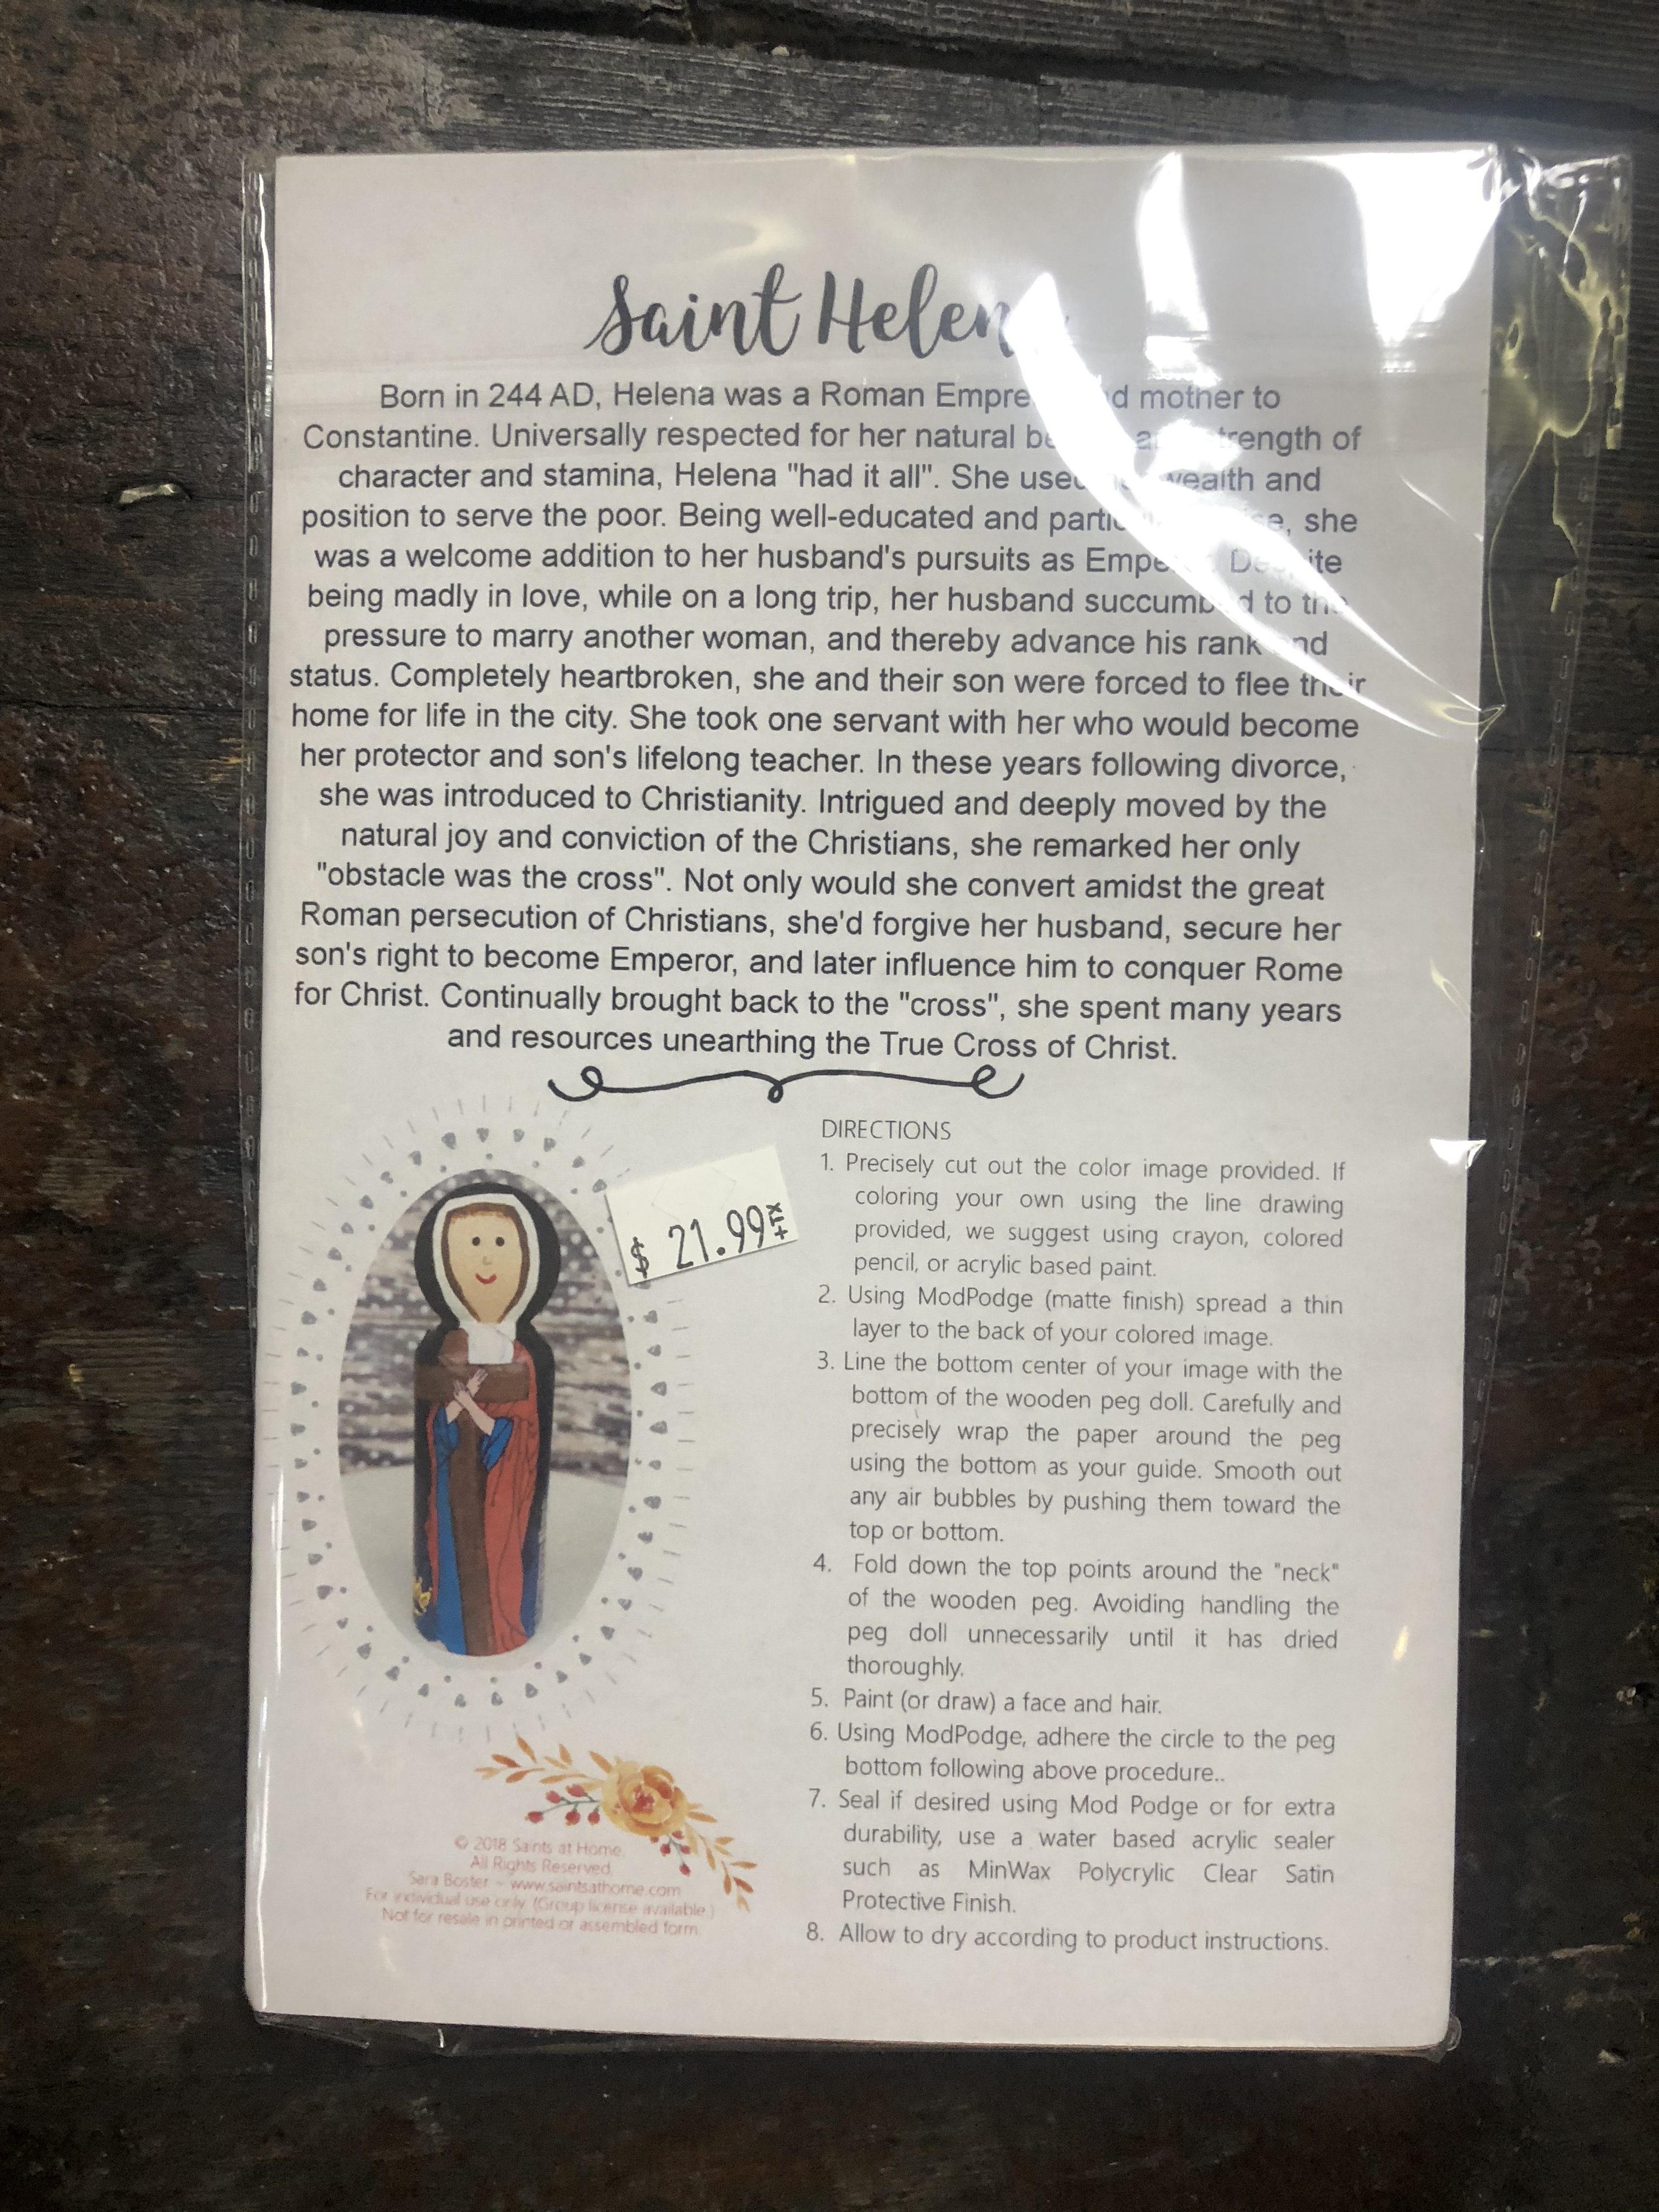 Saint Helen
Born in 244 AD, Helena was a Roman mother to
Constantine. Universally respected for her natural strength of
character and stamina, Helena "had it all". She used wealth and
position to serve the poor. Being well-educated and she
was a welcome addition to her husband's pursuits as Despite
being madly in love, while on a long trip, her husband succumbed to the
pressure to marry another woman, and thereby advance his rank and
status. Completely heartbroken, she and their son were forced to flee their
home for life in the city. She took one servant with her who would become
her protector and son's lifelong teacher. In these years following divorce,
she was introduced to Christianity. Intrigued and deeply moved by the
natural joy and conviction of the Christians, she remarked her only
"obstacle was the cross". Not only would she convert amidst the great
Roman persecution of Christians, she'd forgive her husband, secure her
son's right to become Emperor, and later influence him to conquer Rome
for Christ. Continually brought back to the "cross", she spent many years
and resources unearthing the True Cross of Christ.
DIRECTIONS
1. Precisely cut out the color image provided. If
coloring your own using the line drawing
provided, we suggest using crayon, colored
pencil, or acrylic based paint.
2. Using ModPodge (matte finish) spread a thin
layer to the back of your colored image.
3. Line the bottom center of your image with the
bottom of the wooden peg doll. Carefully and
precisely wrap the paper around the peg
using the bottom as your guide. Smooth out
any air bubbles by pushing them toward the
top or bottom.
4. Fold down the top points around the "neck"
of the wooden peg. Avoiding handling the
peg doll unnecessarily until it has dried
thoroughly.
5. Paint (or draw) a face and hair.
6. Using ModPodge, adhere the circle to the peg
bottom following above procedure..
7. Seal if desired using Mod Podge or for extra
durability, use a water based acrylic sealer
such as MinWax Polycrylic Clear Satin
Protective Finish.
8. Allow to dry according to product instructions.
$ 21.99
© 2018 Saints at Home.
All Rights Reserved.
Sara Boster ~ www.saintsathome.com
For individual use only. (Group license available.)
Not for resale in printed or assembled form.